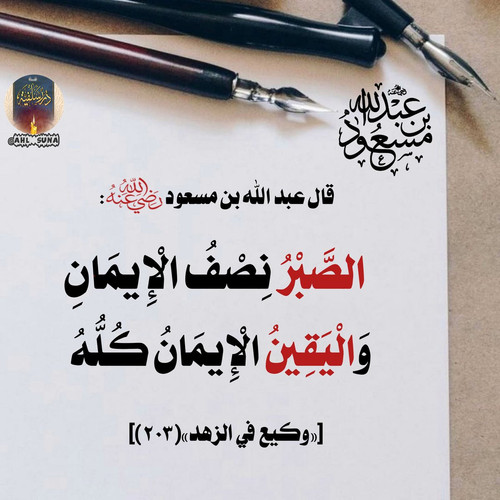 عبد الله
بن مسعود
@AHL_SUNA
قال عبد الله بن مسعود رضي الله عنه :
الصَّبْرُ نِصْفُ الْإِيمَانِ
وَالْيَقِينُ الْإِيمَانُ كُلُّهُ
[«وكيع في الزهد»(٢٠٣)]